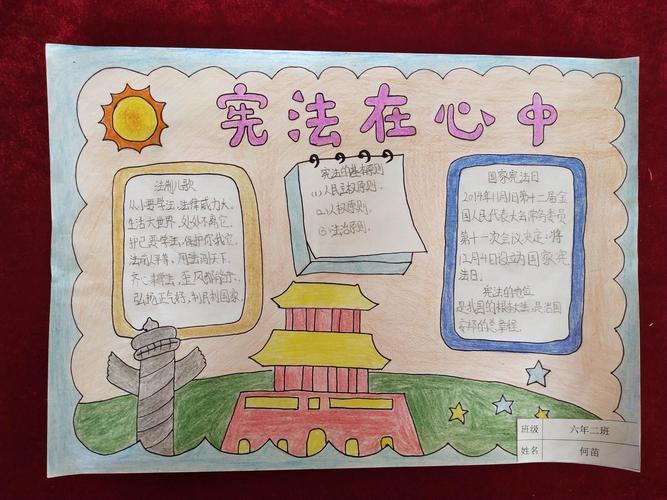 宪法在心中
法制儿歌
从小要学法,法律威力大。
生活大世界,处处不离它。
护己要学法,保护你我它。
法院入手,用法闯天下。
齐心来学法,至风
弘扬正气好,利民利国家。
宪法的基本原则
(1)人民主权原则。
(2)人权原则。
(3)法治原则。
国家宪法日
2014年11月1日第十二届全
国人民代表大会常务委员
第十一次会议决定:将
12月4日设立为国家宪
法日。
宪法的地位
是我国的根本大法,是治国
安邦的总章程。
班级 六年二班
姓名 何苗